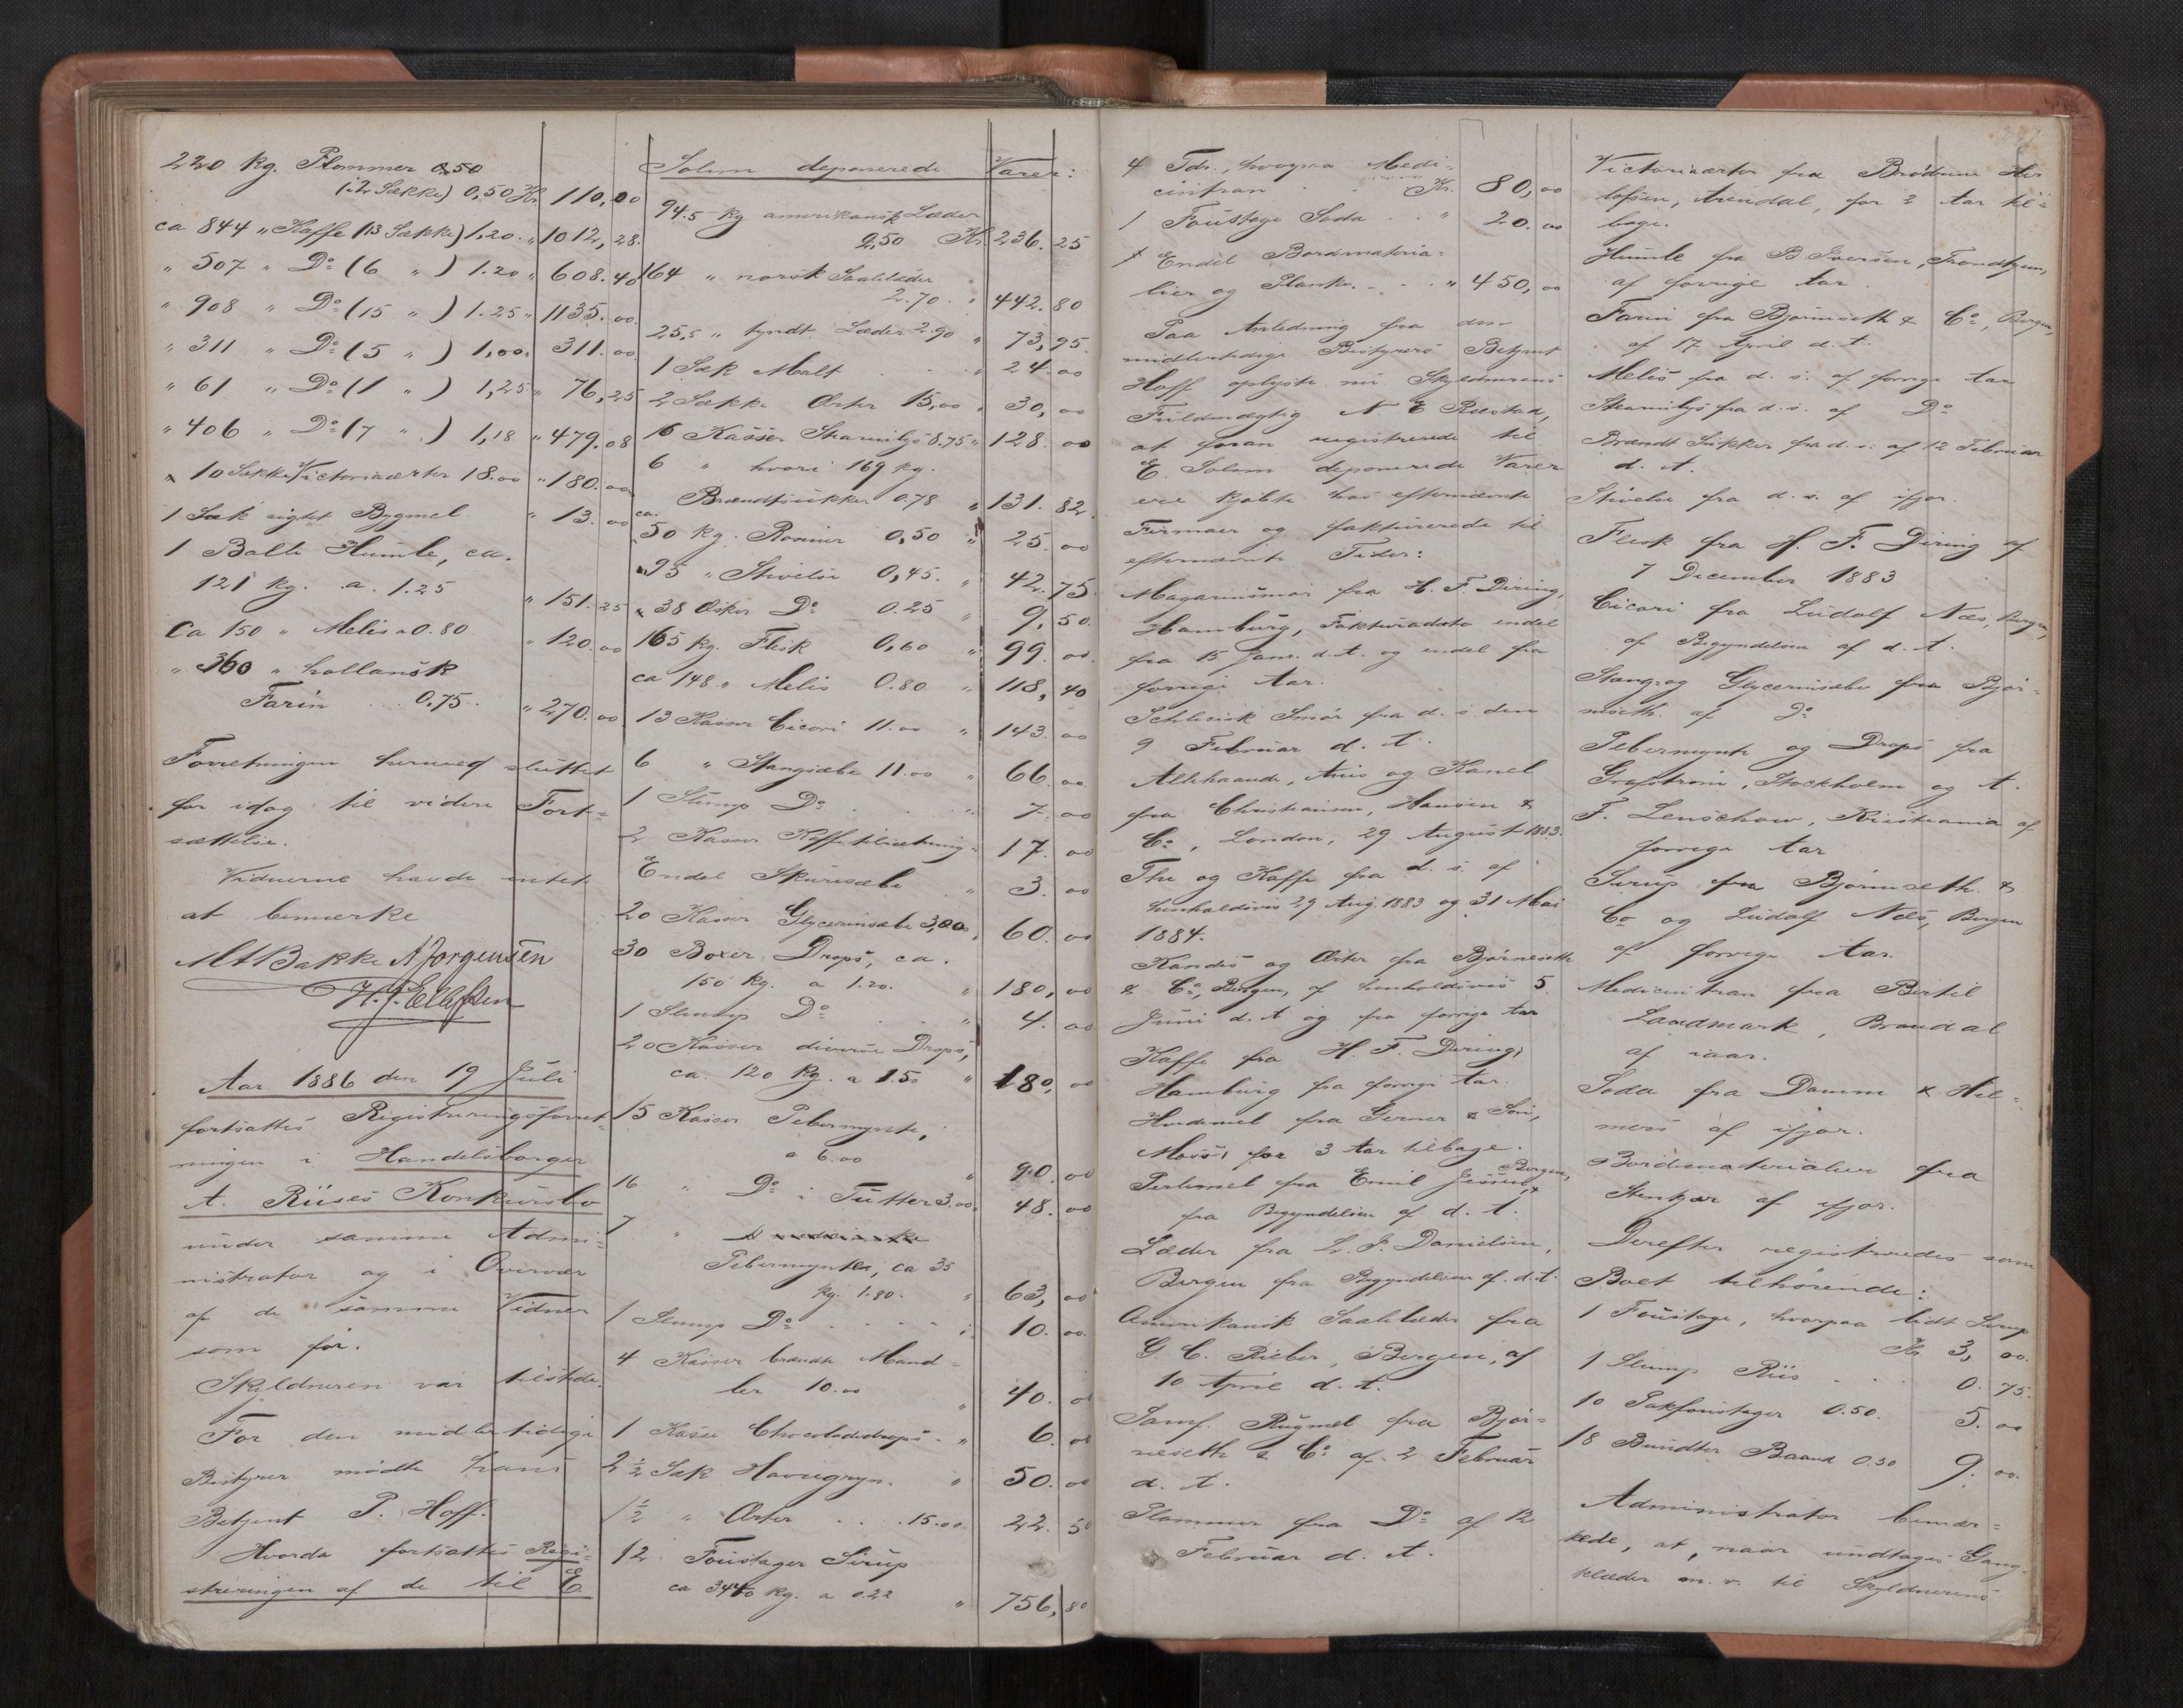 220 kg. Plommer 0,50
(i 2 Sække) 0,50 Kr. 110,00
ca 844 " Kaffe (13 Sække) 1,20 " 1012,28.
" 507 " Do (6 " ) 1.20 " 608.40
" 908 " Do (15 " ) 1.25 " 1135.00
" 311 " Do (5 " ) 1,00 " 311.00
" 61 " Do (1 " ) 1,25 " 76,25
" 406 " Do (7 " ) 1,18 " 479.08
10 Sække Victoriaærter 18.00 " 180.00
1 Sæk sigtet Bygmel " 13.00
1 Balle Humle, ca.
121 kg. a. 1.25 " 151.25
Ca 150 " Melis a 0.80 " 120.00
" 360 " hollansk
Farin . . 0,75 . " 270.00
Forretningen herved sluttet
for idag til videre Fort=
sættelse.
Vidnerne havde intet
at bemærke
M Bakke A Jørgensen
H. J. Ellefsen
Aar 1886 den 19 Juli
fortsattes Registreringsforret=
ningen i Handelsborger
A. Riises Konkursbo
under samme Admi=
nistrator og i Overvær
af de samme Vidner
som før.
Skyldneren var tilstede.
For den midlertidige
Bestyrer mødte hans
Betjent P. Hoff.
Hvorda fortsattes Regi=
streringen af de til E.
Solem deponerede Varer:
94.5 kg amerikansk Læder
2,50 Kr. 236.25
164 " norsk Saalelæder
2.70 . " 442.80
25,5 " tyndt Læder 2.90 " 73,95.
1 Sæk Malt . . " 24.00
2 Sække Ærter 15,00 " 30,00
16 Kasser Stearinlys 8,75 " 128.00
6 " hvori 169 kg.
Brændtsukker 0.78 " 131.82.
ca. 50 kg. Rosiner 0,50 " 25.00
" 95 " Stivelse 0,45. " 42.75
38 Æsker Do 0.25 " 9,50.
165 kg. Flesk 0,60 " 99.00
ca 148 " Melis 0.80 " 118,40
13 Kasser Cicori 11.00 " 143.00
6 " Stangsæbe 11.00 " 66.00
1 Slump Do . . " 7.00
2 Kasser Kaffetilsætning " 17.00
Endel Skuresæbe " 3.00
20 Kasser Glycerinsæbe 3,00 " 60.00
30 Boxer Drops, ca.
150 kg. a 1.20. " 180,00
1 Slump Do . . " 4.00
20 Kasser diverse Drops,
ca. 120 kg. a 1.50 " 180,00
15 Kasser Pebermynte,
a 6.00 " 90.00
16 " Do i Tutter 3.00 48.00
7 "
Pebermynte, ca 35
kg. 1.80. " 63,00
1 Slump Do . . . . " 10.00.
4 Kasser brændte Mand=
ler 10.00 " 40.00
1 Kasse Chocoladedrops . " 6.00
2 1/2 Sæk Havregryn. " 50.00
1 1/2 " Ærter . . . 15.00 22.50
12 Foustager Sirup
ca 3440 kg. a 0.22 " 756,80
4 Tdr., hvorpaa Medi=
cintran . . Kr. 80,00
1 Foustage Soda . . " 20.00
Endel Bordmateria=
lier og Planke . . . . " 450,00
Paa Anledning fra den
midlertidige Bestyrers Betjent
Hoff oplyste nu Skyldnerens
Fuldmægtig N E Rustad,
at foran registrerede til
E. Solem deponerede Varer
ere kjøbte hos efternævnte
Firmaer og fakturerede til
efternævnte Tider:
Magarinsmør fra H. F. Diring,
Hamburg, Fakturadato endel
fra 15 Janr. d. A. og endel fra
forrige Aar.
Schleisk Smør fra d. s den
9 Februar d. A.
Allehaande, Anis og Kanel
fra Christiansen, Hansen &
Co, London, 29 August 1883.
The og Kaffe fra d. s. af
henholdsvis 29 Aug. 1883 og 31 Mai
1884.
Kandis og Ærter fra Bjørneseth
& Co, Bergen, af henholdsvis 5
Juni d. A og fra forrige Aar
Kaffe fra H. F. Diring,
Hamburg fra forrige Aar.
Hvedemel fra Gerner & Søn,
Moss, for 3 Aar tilbage.
Perlemel fra Emil Jessen, Bergen,
fra Begyndelsen af d. A.
Læder fra L. J. Danielsen,
Bergen fra Begyndelsen af d. A.
Amerikansk Saalelæder fra
G. C. Rieber, Bergen, af
10 April d. A.
Samf. Rugmel fra Bjør=
neseth & Co af 2 Februar
d. A.
Plommer fra Do af 12
Februar d. A.
Victoriaærter fra Brødrene Her
lofsen, Arendal, for 2 Aar til=
bage.
Humle fra B Iversen, Trondhjem,
af forrige Aar.
Farin fra Bjørneseth & Co, Bergen,
af 17 April d. A.
Melis fra d. s. af forrige Aar
Stearinlys fra d. s. af Do
Brændt Sukker fra d. s. af 12 Februar
d. A.
Stivelse fra d. s. af ifjor.
Flesk fra H. F. Diring af
7 December 1883
Cicori fra Ludolf Næs, Bergen,
af Begyndelsen af d. A.
Stang= og Glycerinsæbe fra Bjør=
neseth af Do
Pebermynte og Drops fra
Grafström, Stockholm og A.
F. Lenschow, Kristiania af
forrige Aar
Sirup fra Bjørneseth &
Co og Ludolf Næs, Bergen
af forrige Aar.
Medicintran fra Bertil
Landmark, Brandal
af iaar.
Soda fra Damm & Hil=
mers af ifjor.
Bordmaterialier fra
Stenkjær af ifjor.
Derefter registreredes som
Boet tilhørende:
1 Foustage, hvorpaa lidt Sirup
Kr 3,00.
1 Slump Riis . . . 0.75.
10 Pakfoustager 0.50. 5.00
18 Bundter Baand 0.50 9.00.
Administrator bemær=
kede, at, naar undtages Gang=
klæder m. v. til Skyldnerens